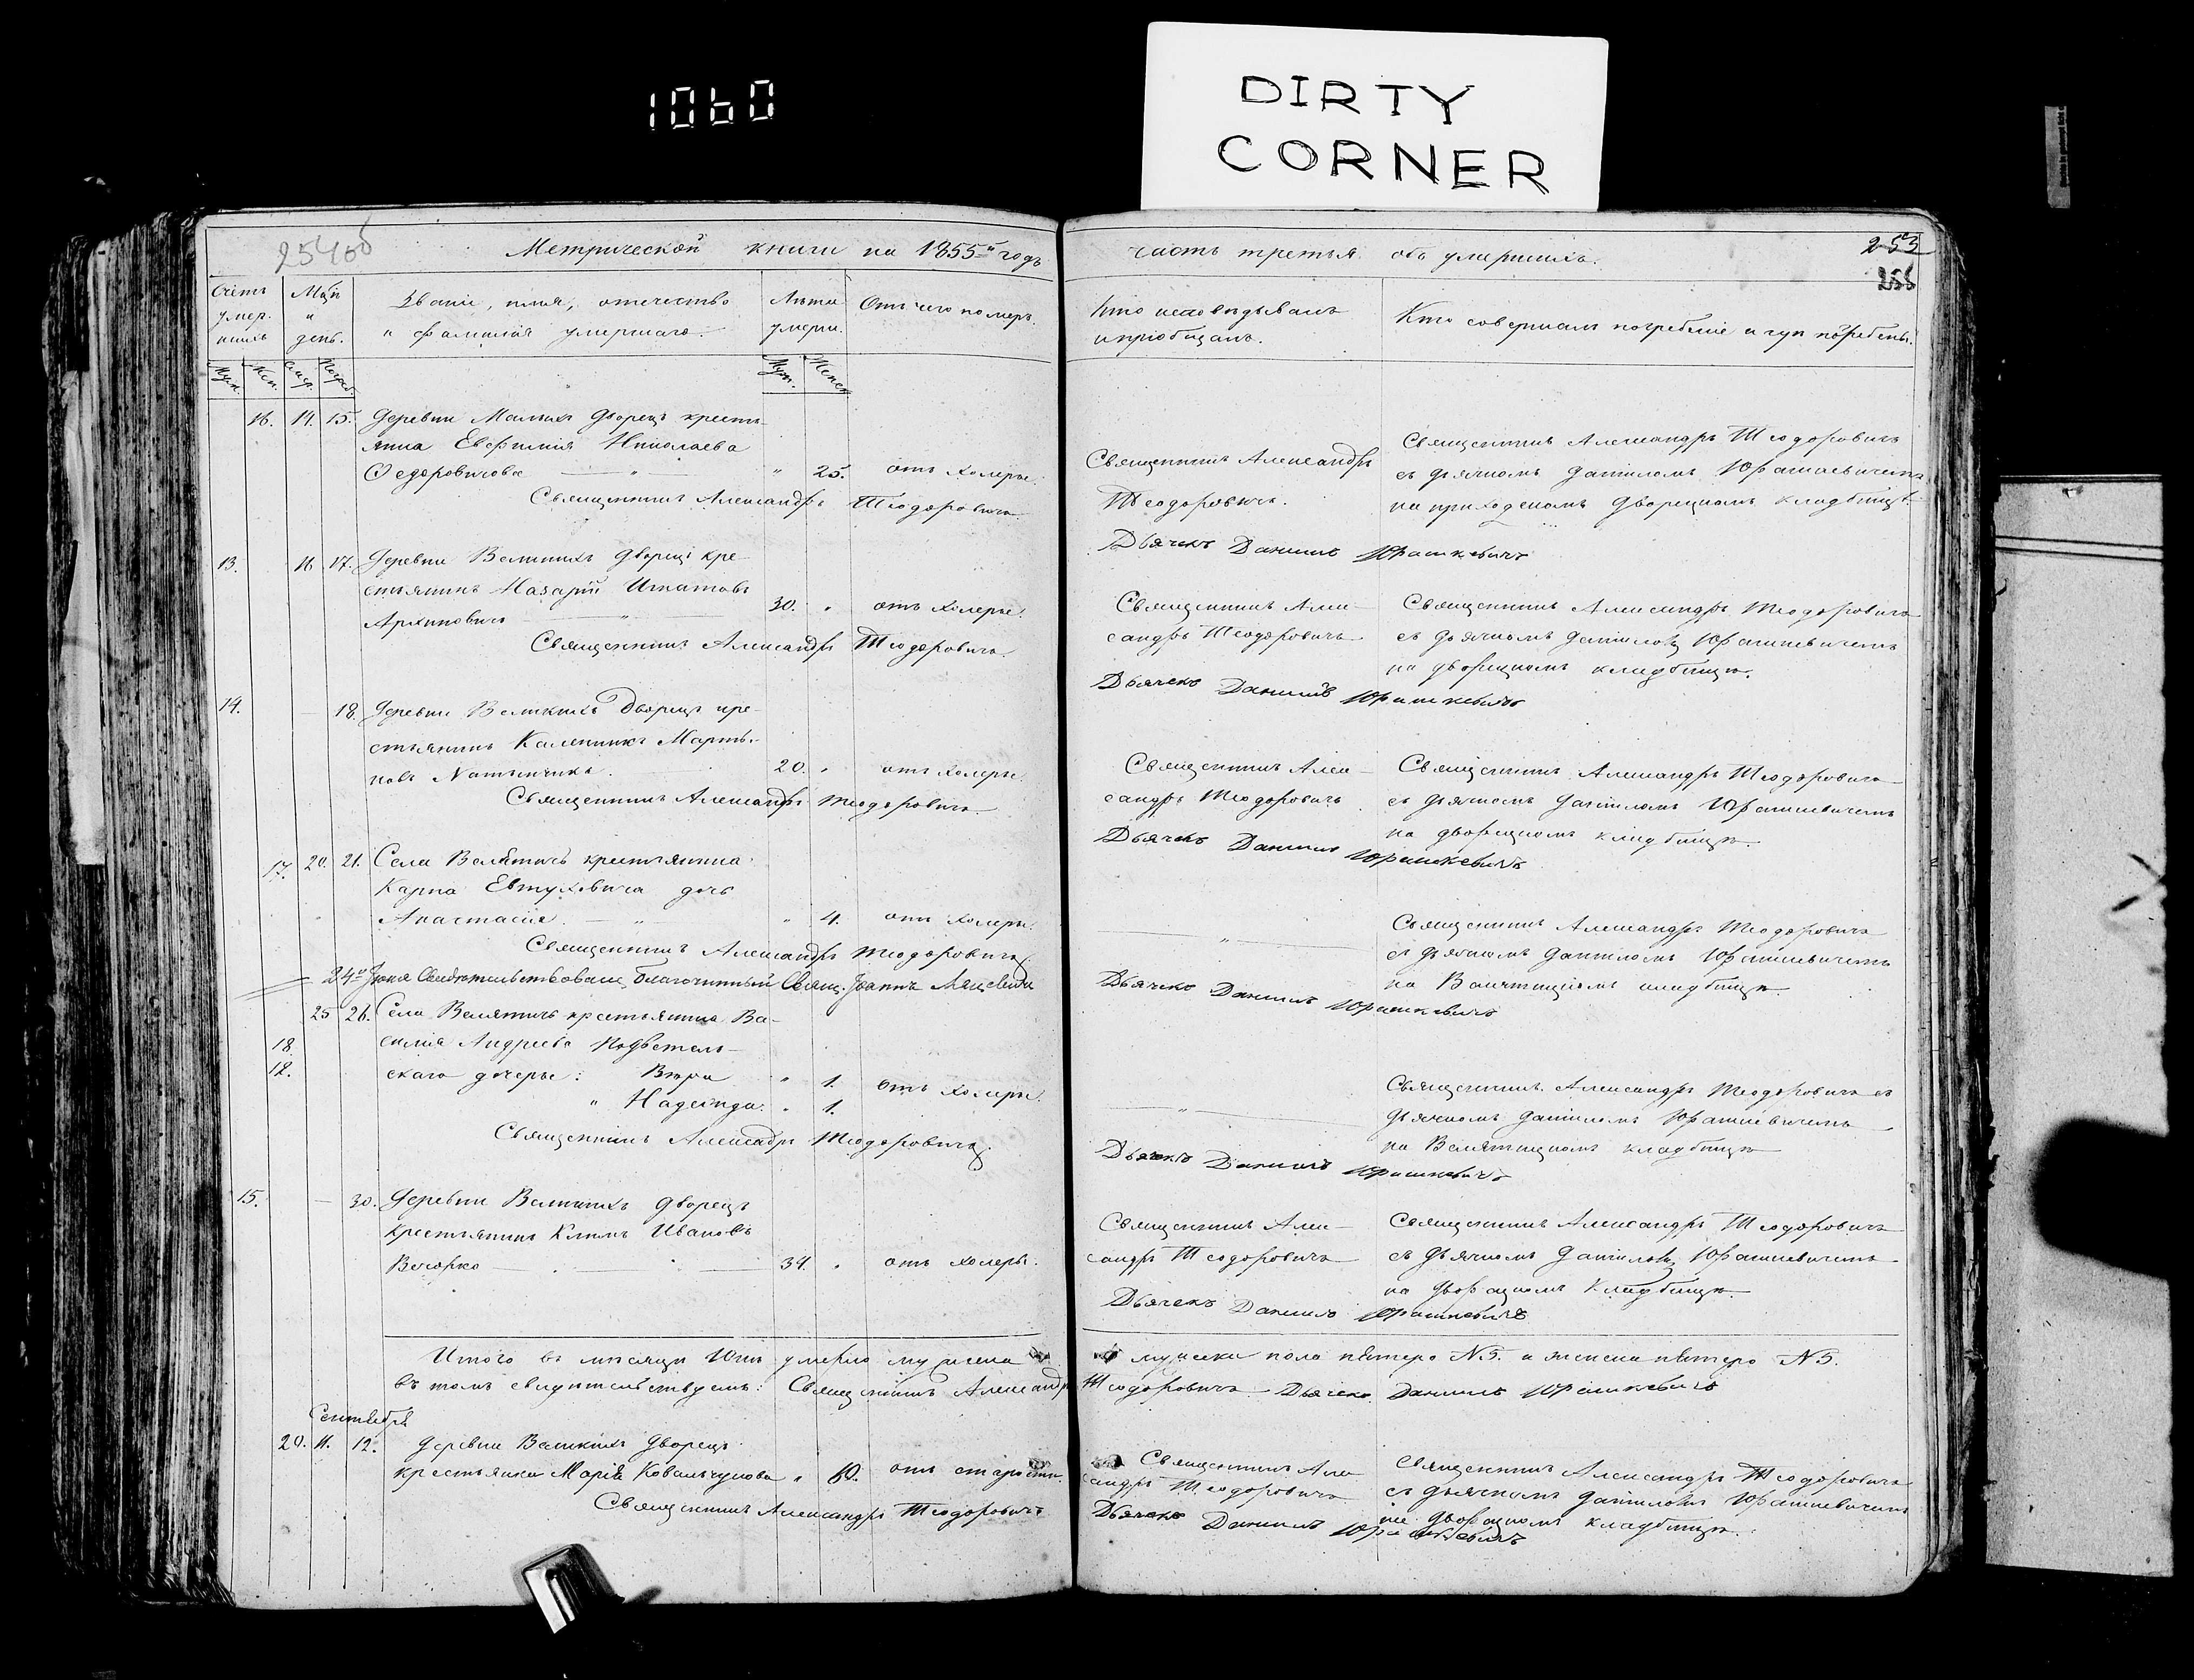 1060
DIRTY
CORNER
Метрической книги на 1855й годъ
часть третья объ умершихъ.
253
Счетъ умер-шихъ
Мцъ и день.
Званіе, имя, отечество и фамилія умершаго.
Лѣта умерш.
Отъ чего померъ.
Кто исповѣдывалъ и пріобщалъ.
Кто совершалъ погребеніе и гдѣ погребены.
Муж. Жен. Смер. Погреб.
Муж. Женск.
16. 14. 15. Деревни Малыхъ Дворецъ кресть-
янка Евфимія Николаева
Федоровичова " 25. отъ холеры.
Священникъ Александръ Теодоровичъ
Священникъ Александръ
Теодоровичъ.
Священникъ Александръ Теодоровичъ
съ дьячкомъ Даниломъ Юрашкевичемъ
на приходскомъ Дворецкомъ кладбищѣ.
Дьячекъ Данилъ Юрашкевичъ
13. 16 17. Деревни Великихъ Дворецъ кре-
стьянинъ Назарій Игнатовъ
Архиповичъ 30. " отъ холеры.
Священникъ Александръ Теодоровичъ.
Священникъ Алек-
сандръ Теодоровичъ
Священникъ Александръ Теодоровичъ
съ дьячкомъ Даниломъ Юрашкевичемъ
на дворецкомъ кладбищѣ.
Дьячекъ Данилъ Юрашкевичъ
14. — 18. Деревни Великихъ Дворецъ кре-
стьянинъ Каленикъ Марты-
новъ 20. " отъ холеры.
Священникъ Александръ Теодоровичъ
Священникъ Алек-
сандръ Теодоровичъ
Священникъ Александръ Теодоровичъ
съ дьячкомъ Даниломъ Юрашкевичемъ
на дворецкомъ кладбищѣ.
Дьячекъ Данилъ Юрашкевичъ
17. 20. 21. Села Велятичъ крестьянина
Карпа Евтуховича дочь
Анастасія " 4. отъ холеры.
Священникъ Александръ Теодоровичъ
Священникъ Александръ Теодоровичъ
съ дьячкомъ Даниломъ Юрашкевичемъ
на Велятицкомъ кладбищѣ.
Дьячекъ Данилъ Юрашкевичъ
24го Іюня Свидѣтельствовалъ Благочинный Свящ. Іоаннъ
25 26. Села Велятичъ крестьянина Ва-
18. силія Андреева
12. скаго дочери: " 1. отъ холеры.
" Надежда. " 1.
Священникъ Александръ Теодоровичъ.
Священникъ Александръ Теодоровичъ съ
дьячкомъ Даниломъ Юрашкевичемъ
на Велятицкомъ кладбищѣ
Дьячекъ Данилъ Юрашкевичъ
15. — 30. Деревни Великихъ Дворецъ
крестьянинъ Климъ Ивановъ
Вечорко 34. " отъ холеры.
Священникъ Алек-
сандръ Теодоровичъ
Священникъ Александръ Теодоровичъ
съ дьячкомъ Даниломъ Юрашкевичемъ
на дворецкомъ кладбищѣ.
Дьячекъ Данилъ Юрашкевичъ
Итого въ мѣсяцѣ Юнѣ умерло мужеска
мужеска пола пятеро №5. и женска пятеро №5.
въ томъ свидѣтельствуемъ: Священникъ Александръ
Теодоровичъ Дьячекъ Данилъ Юрашкевичъ
Сентября
20. 11. 12. Деревни Великихъ Дворецъ
крестьянка Марія Ковальчукова " 60. отъ старости.
Священникъ Александръ Теодоровичъ
Священникъ Алек-
сандръ Теодоровичъ
Священникъ Александръ Теодоровичъ
съ дьячкомъ Даниломъ Юрашкевичемъ
на дворецкомъ кладбищѣ.
Дьячекъ Данилъ Юрашкевичъ